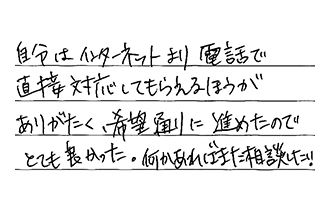 自分はインターネットより電話で
直接対応してもらえるほうが
ありがたく、希望通りに進めたので
とても良かった。何かあればまた相談したい!